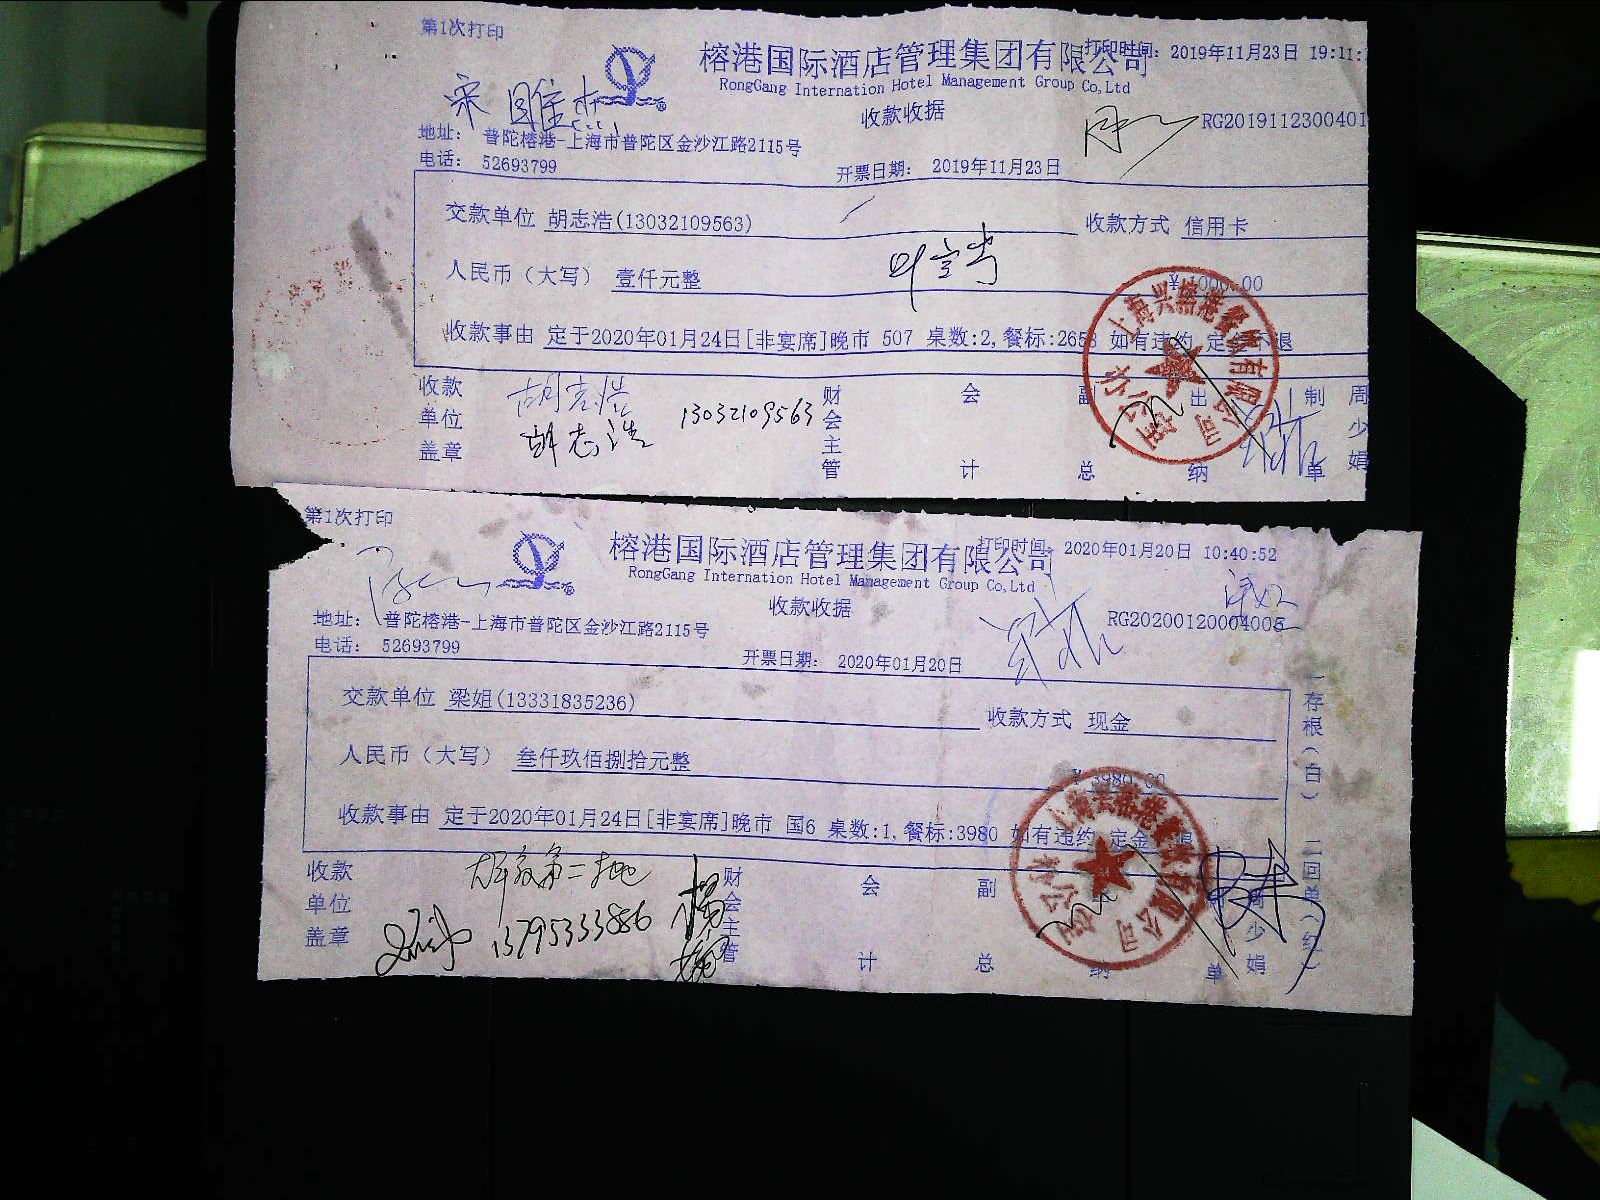 第1次打印
榕港国际酒店管理集团有限公司
打印时间: 2019年11月23日 19:11:
RongGang Internation Hotel Management Group Co,Ltd
收款收据
RG2019112300401
地址: 普陀榕港-上海市普陀区金沙江路2115号
电话: 52693799
开票日期: 2019年11月23日
交款单位 胡志浩(13032109563) 收款方式 信用卡
人民币（大写） 壹仟元整 ¥ 1000.00
收款事由 定于2020年01月24日[非宴席]晚市 507 桌数:2,餐标:2658 如有违约 定金不退
收款单位盖章 胡志浩 13032109563 财会主管 会计 副总 出纳 制单 周少娟
胡志浩
第1次打印
榕港国际酒店管理集团有限公司
打印时间: 2020年01月20日 10:40:52
RongGang Internation Hotel Management Group Co,Ltd
收款收据
RG2020012000400
地址: 普陀榕港-上海市普陀区金沙江路2115号
电话: 52693799
开票日期: 2020年01月20日
交款单位 梁姐(13331835236) 收款方式 现金
人民币（大写） 叁仟玖佰捌拾元整 ¥ 3980.00
收款事由 定于2020年01月24日[非宴席]晚市 国6 桌数:1,餐标:3980 如有违约 定金不退
收款单位盖章 13795333886 财会主管 会计 副总 纳 单 周少娟
一存根(白) 二回单(红)